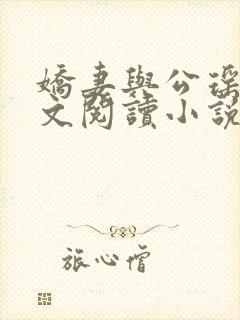 嬌妻與公瑤
文閱讀小説
旅心僧